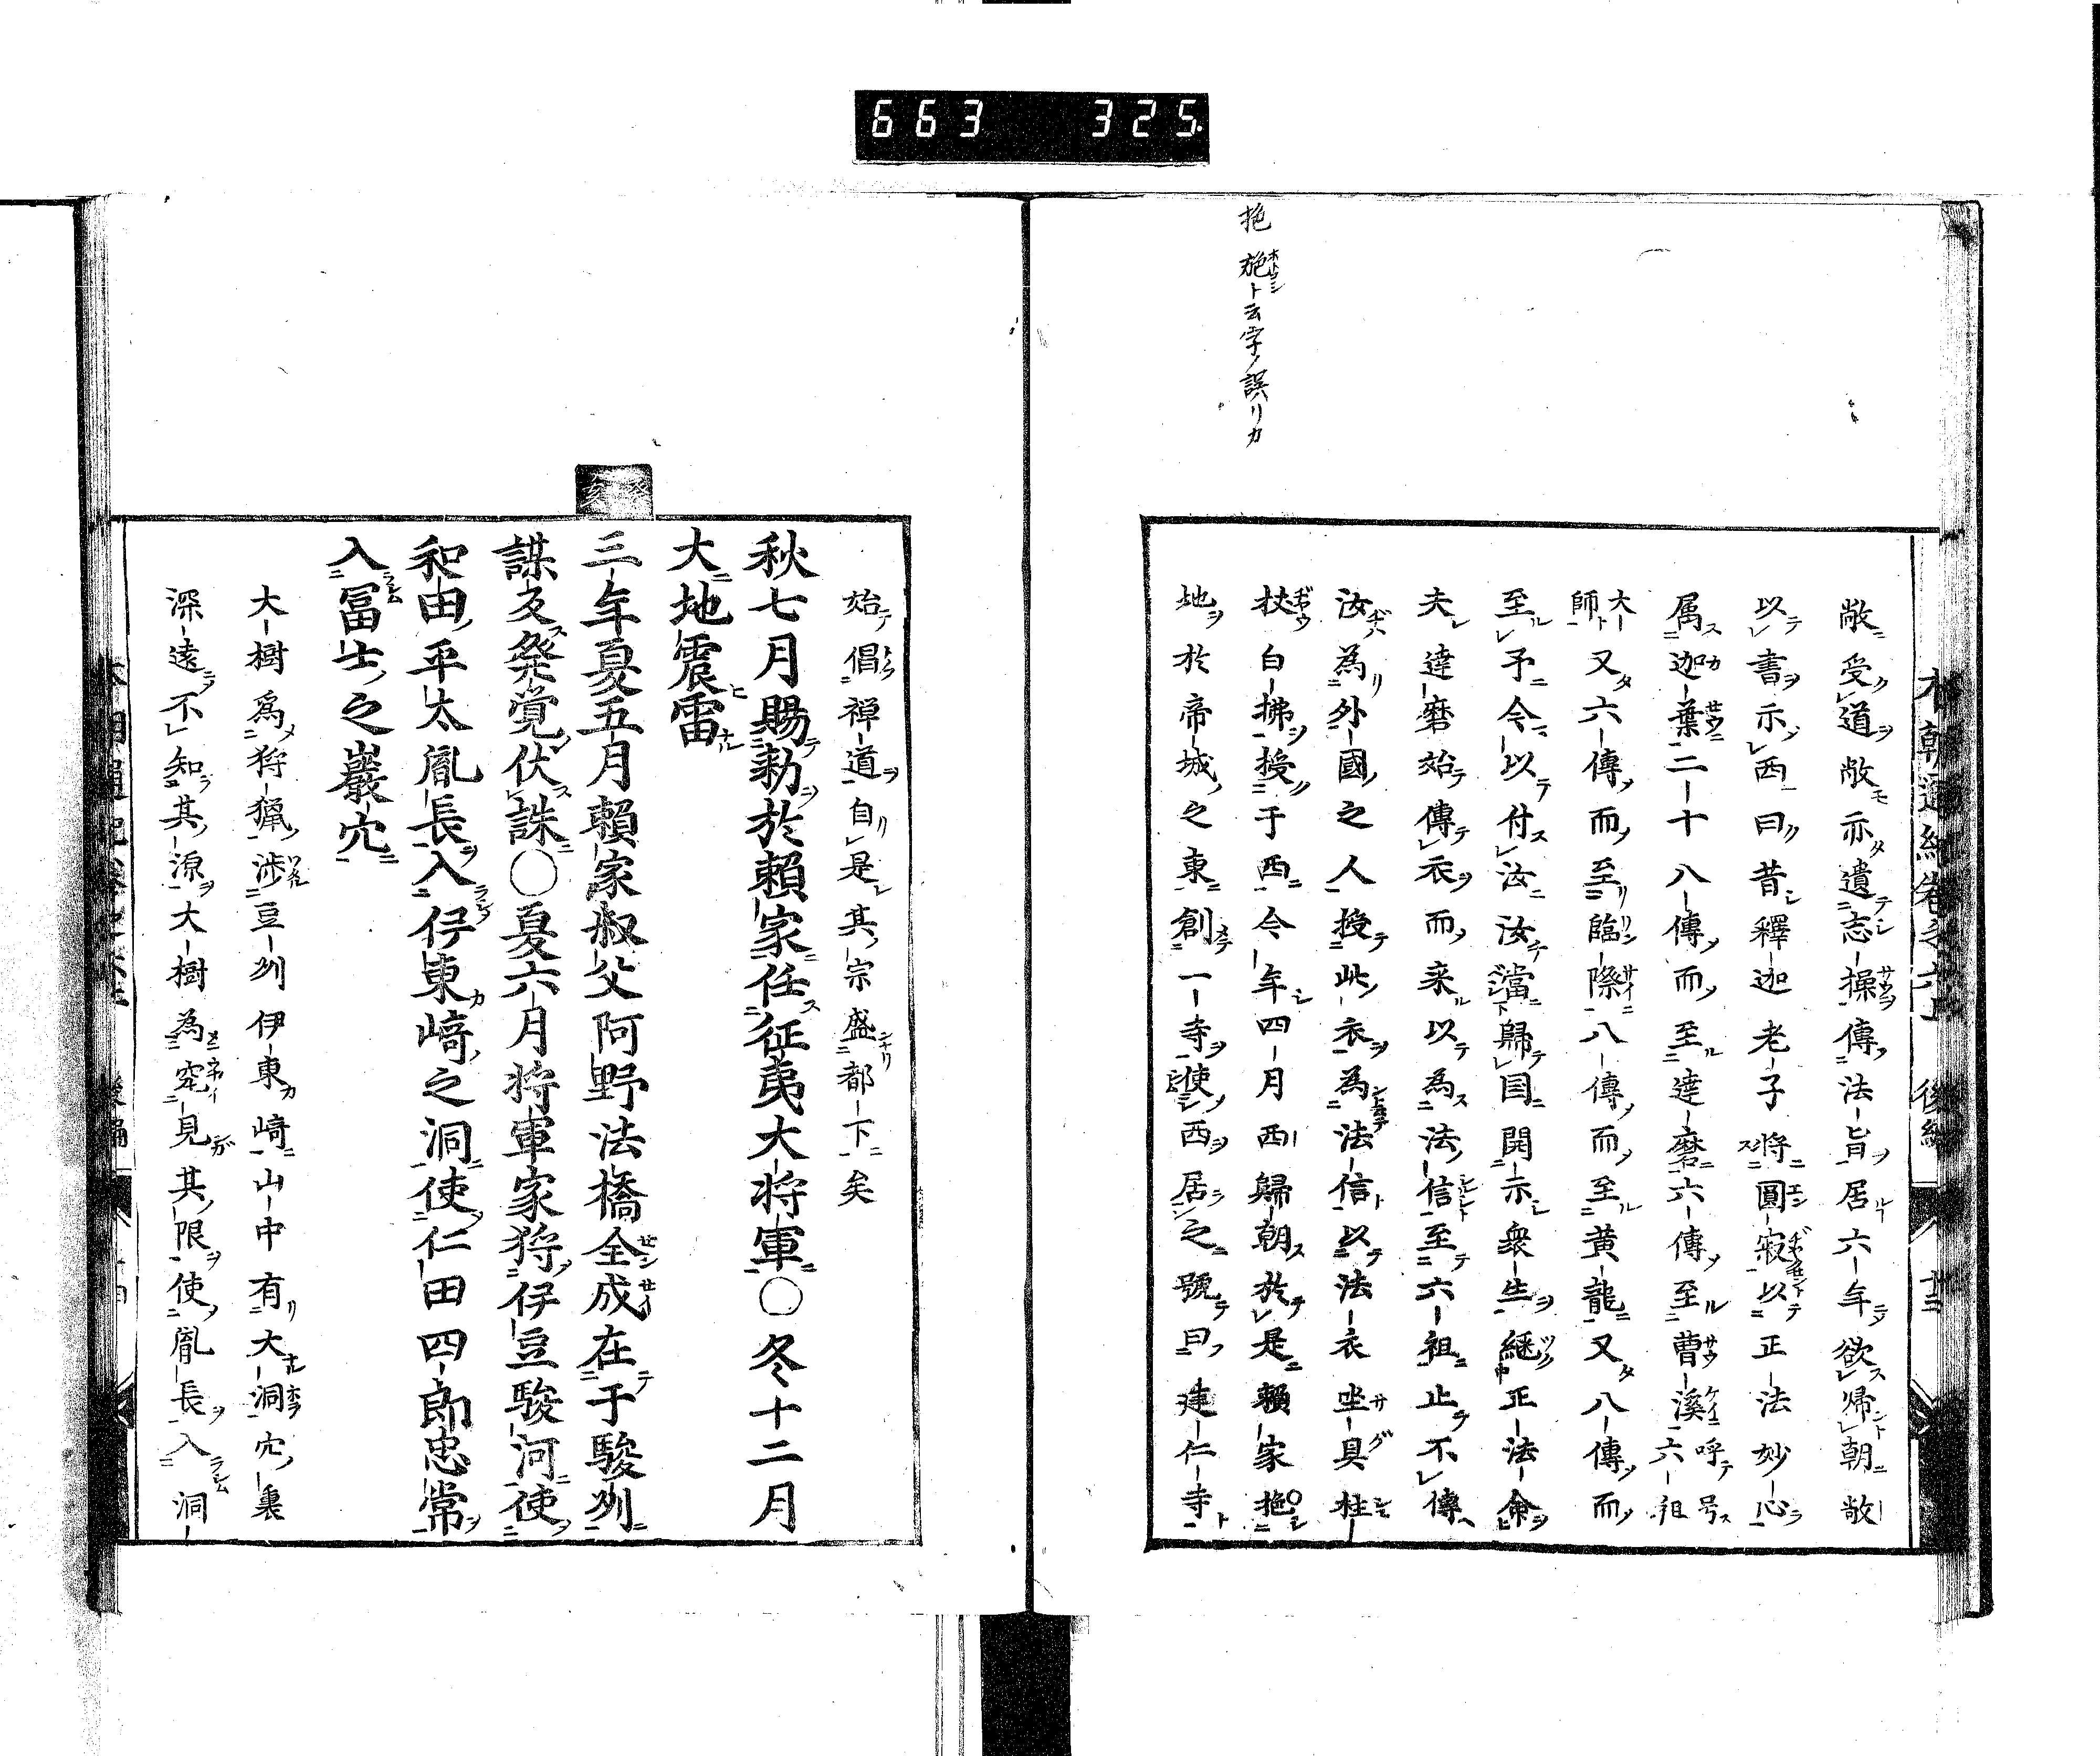 663 325
拖 施ト云字ノ誤リカ
敞受道敞亦遺志操傳法旨居六年欲帰朝敞
以書示西曰昔釋迦老子將圓寂以正法妙心
属迦葉二十八傳而至達磨六傳至曹溪六祖呼号
大師又六傳而至臨際八傳而至黄龍又八傳而
至予今以付法汝汝當歸国開示衆生継正法命
夫達磨始傳衣而来以為法信至六祖止不傳
汝為外國之人授此衣為法信以法衣坐具柱
杖白拂授于西今年四月西歸朝於是頼家拖
地於帝城之東創一寺使西居之號曰建仁寺
始倡禅道自是其宗盛都下矣
秋七月賜勅於頼家任征夷大将軍〇冬十二月
大地震雷
癸亥
三年夏五月頼家叔父阿野法橋全成在于駿州
謀反発覚伏誅〇夏六月将軍家狩伊豆駿河使
和田平太胤長入伊東崎之洞使仁田四郎忠常
入冨士之巌穴
大樹為狩猟渉豆州伊東崎山中有大洞穴裏
深遠不知其源大樹為究見其限使胤長入洞